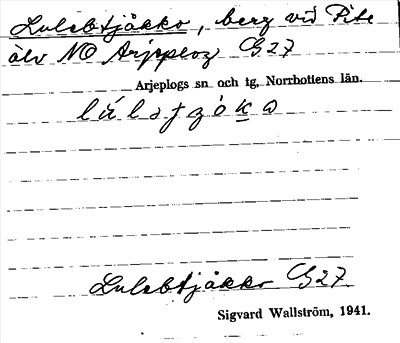 Lulebtjåkko, berg vid Pite
älv NO Arjeplog G27
Arjeplogs sn och tg, Norrbottens län.
Lulebtjåkko G27.
Sigvard Wallström, 1941.